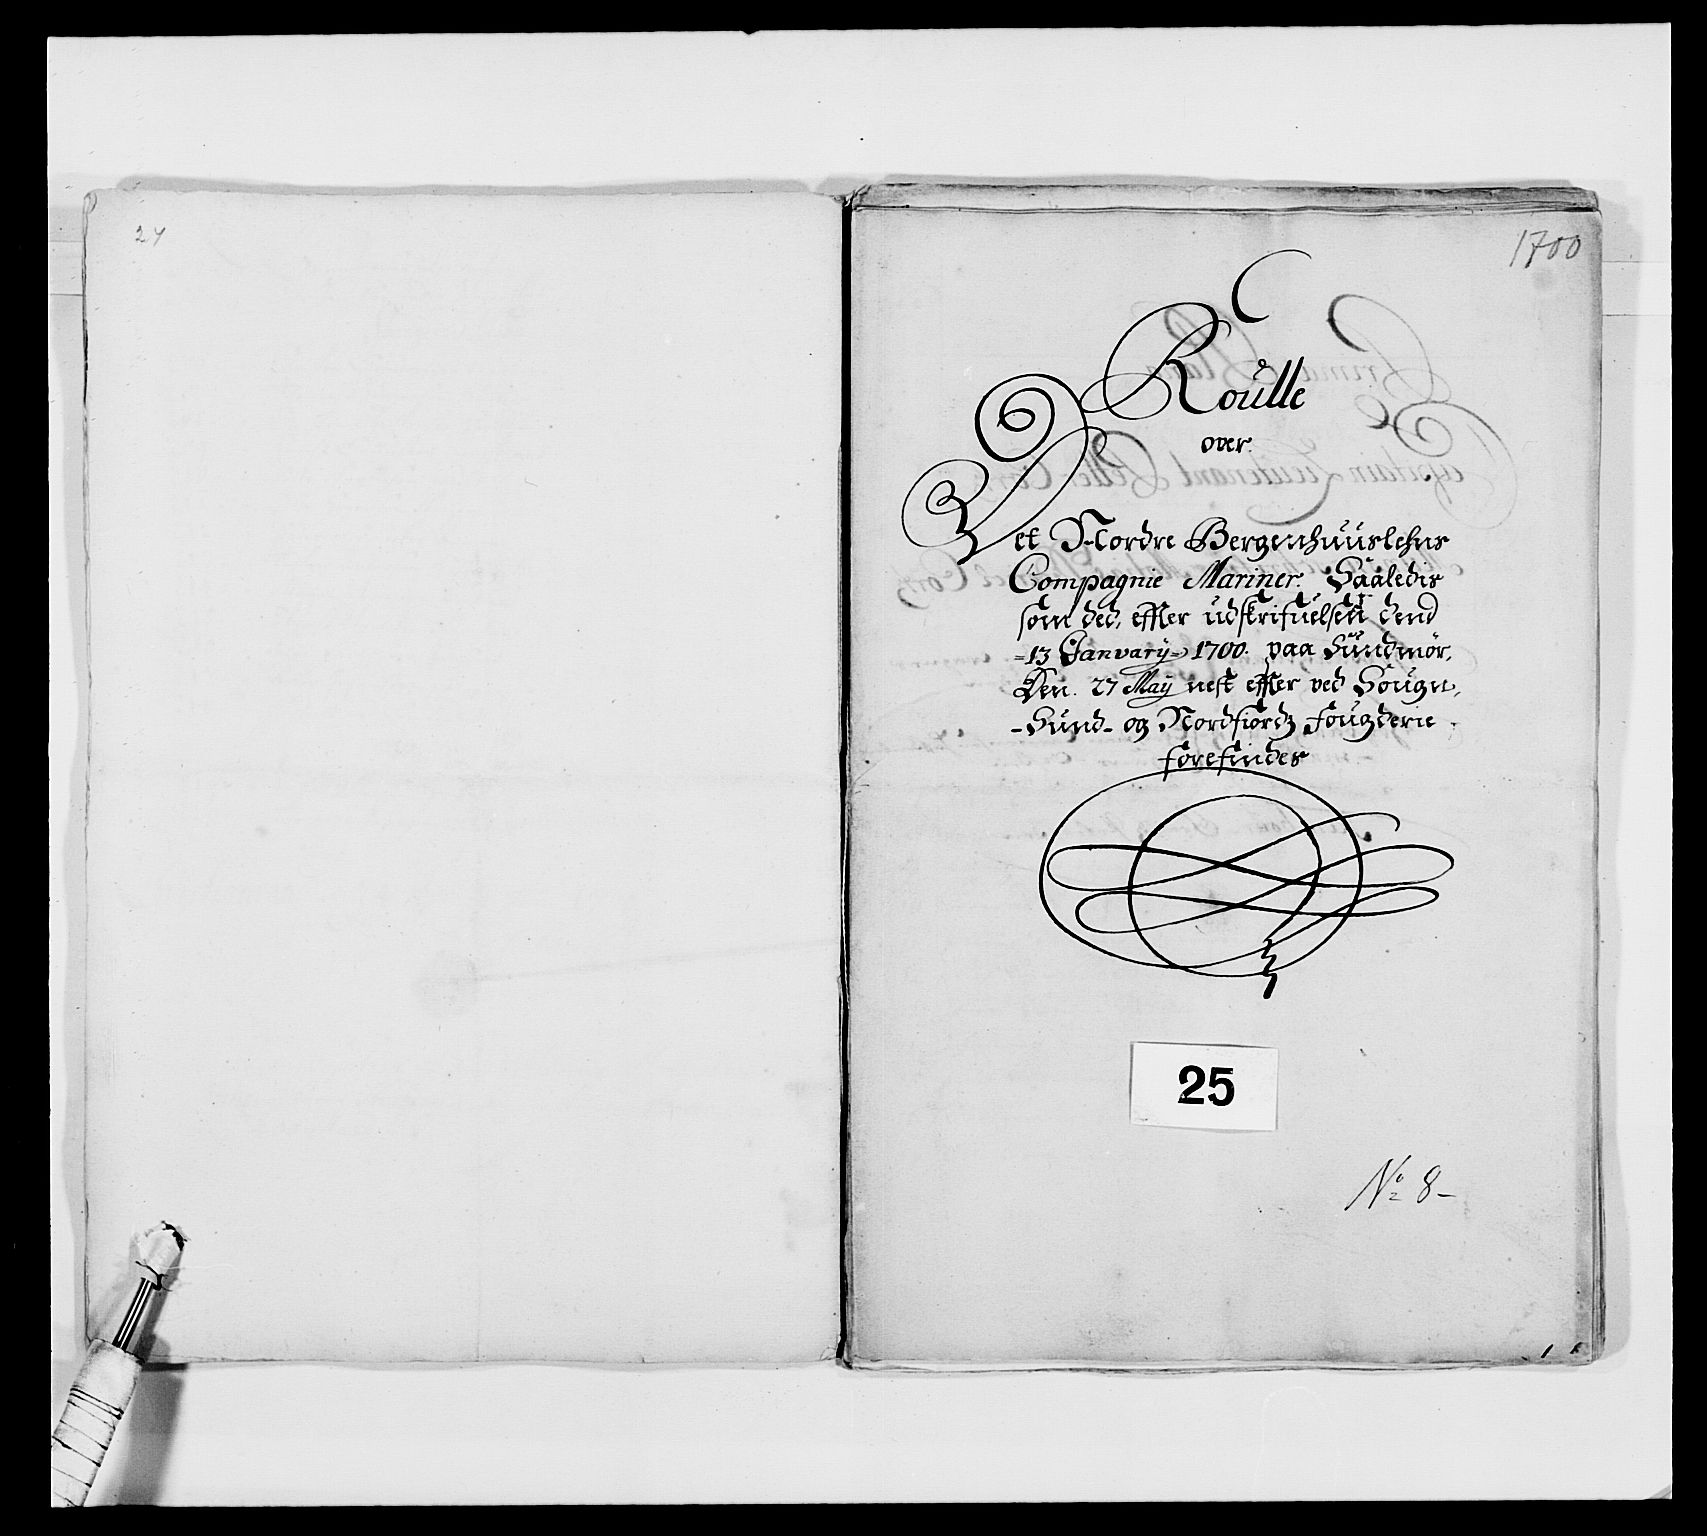 24
1700
Roulle
over
Det Nordre Bergenhuuslehns
Compagnie Mariner. Saaledis
som ded, effter udskrifuelsen dend
=13 January= 1700. paa Sundmør,
Den. 27 May nest effter ved Sougn,
-Sund- og Nordfiordz fougderie
forefindes
25
No 8-